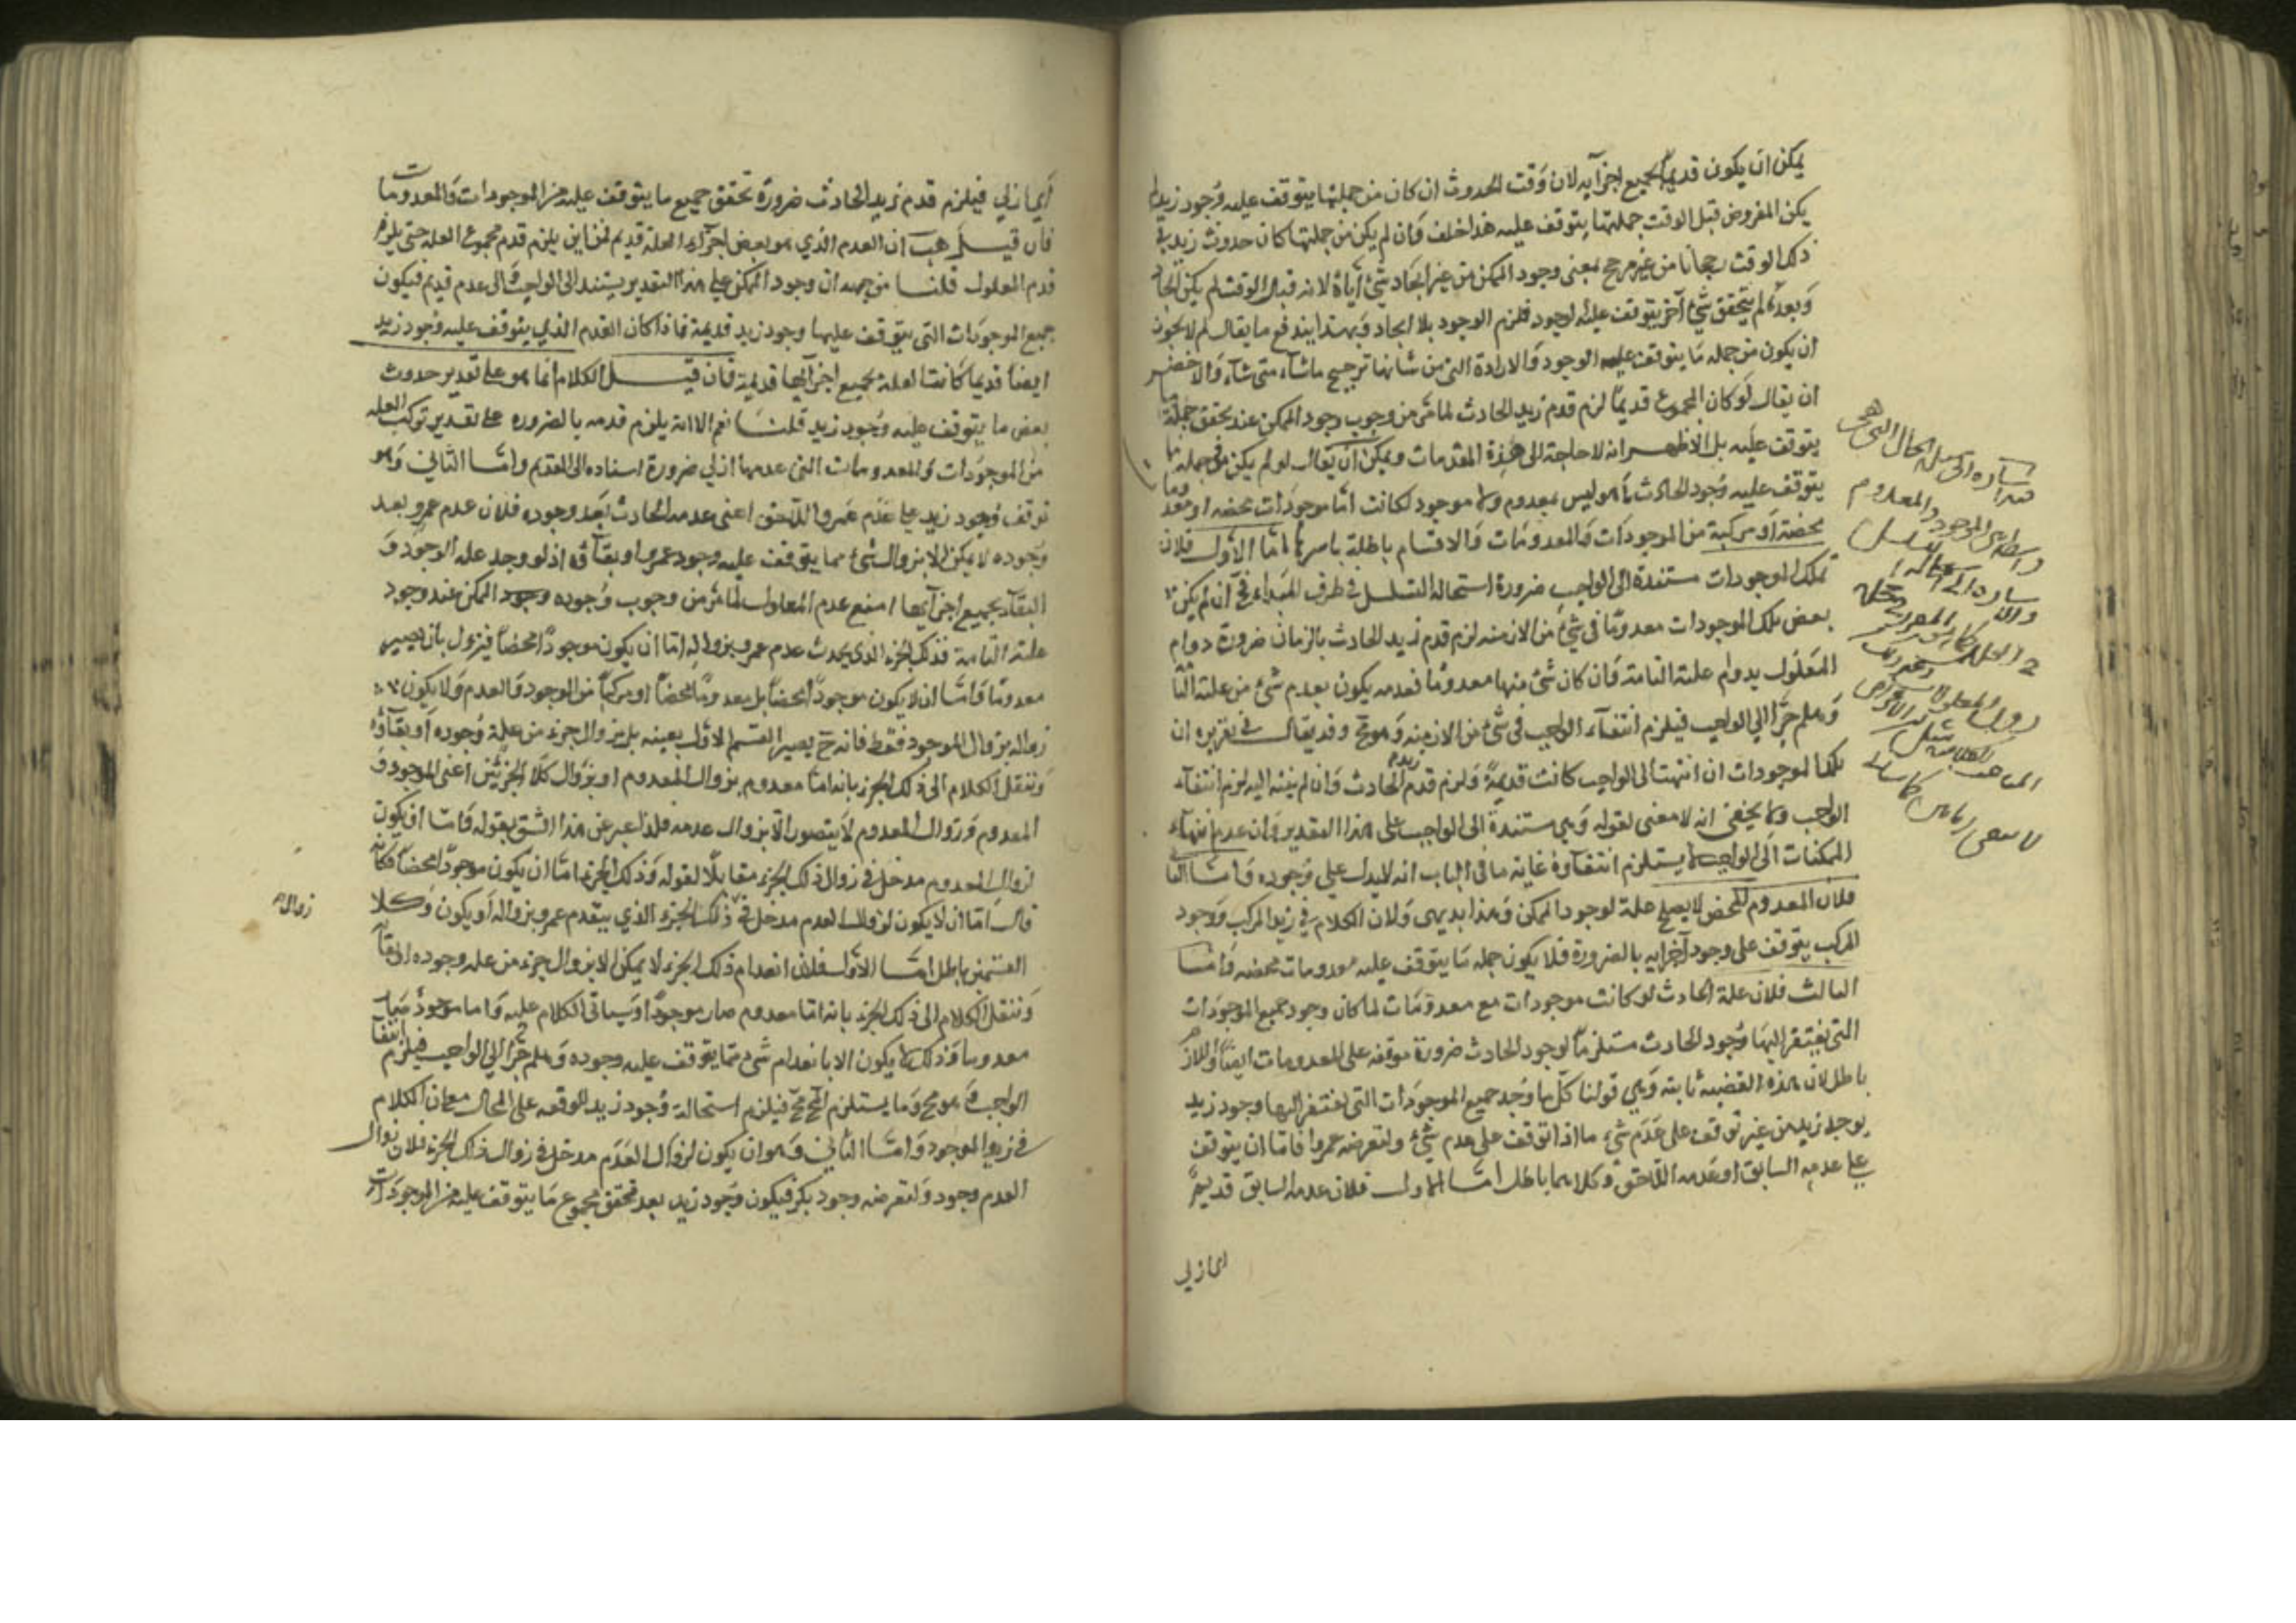 يمكن ان يكون قديما بجميع اجزآيه لان وقت الحدوث ان كان من جملة ما يتوقف عليه وجود زيد لم
يكن المفروض قبل الوقت جملة ما يتوقف عليه هذا خلف وان لم يكن من جملتها كان حدوث زيد في
ذلك الوقت رجحانا من غير مرجح بمعنى وجود الممكن من غير ايجاد شئ اياه لانه قبل الوقت لم يكن ايجاد
وبعده لم يتحقق شئ آخر يتوقف عليه الوجود فلزم الوجود بلا ايجاد وبهذا يندفع ما يقال لم لا يجوز
ان يكون من جملة ما يتوقف عليه الوجود الارادة التى من شانها ترجيح ما شآء متى شآء والاخصر
ان يقال لو كان المجموع قديما لزم قدم زيد الحادث لما مر من وجوب وجود الممكن عند تحقق جملة ما
يتوقف عليه بل الاظهر انه لا حاجة الى هذه المقدمات ويمكن ان يقال لو لم يكن في جملة ما
يتوقف عليه وجود الحادث ما هو ليس بمعدوم ولا موجود لكانت اما موجودات محضه او معدومات
محضة او مركبة من الموجودات والمعدومات والاقسام باطلة باسرها اما الاول فلان
تلك الموجودات مستندة الى الواجب ضرورة استحالة التسلسل في طرف المبداء فح ان لم يكن
بعض تلك الموجودات معدوما في شئ من الازمنه لزم قدم زيد الحادث بالزمان ضرورة دوام
المعلول بدوام علته التامة وان كان شئ منها معدوما فعدمه يكون بعدم شئ من علته التامة
وهلم جرا الى الواجب فيلزم انتفآء الواجب في شئ من الازمنه وهو مح وقد يقال في تقريره ان
تلك الموجودات ان انتهت الى الواجب كانت قديمة ولزم قدم زيد الحادث وان لم ينته اليه لزم انتفآء
الواجب ولا يخفى انه لا معنى لقوله وهي مستندة الى الواجب على هذا التقدير وان عدم انتهآء
الممكنات الى الواجب لا يستلزم انتفآؤه غاية ما في الباب انه لا يدل على وجوده واما الثاني
فلان المعدوم المحض لا يصلح علة لوجود الممكن وهذا بديهى ولان الكلام في زيد المركب ووجود
المركب يتوقف على وجود اجزايه بالضرورة فلا يكون جملة ما يتوقف عليه معدومات محضه واما
الثالث فلان علة الحادث لو كانت موجودات مع معدومات لما كان وجود جميع الموجودات
التي يفتقر اليها وجود الحادث مستلزما لوجود الحادث ضرورة توقفه على المعدومات ايضا واللازم
باطل لان هذه القضية ثابته وهي قولنا كلما وجد جميع الموجودات التي يفتقر اليها وجود زيد
يوجد زيد من غير توقف على عدم شئ ما اذ لو توقف على عدم شئ ولنفرضه عمروا فاما ان يتوقف
على عدمه السابق او عدمه اللاحق وكلاهما باطل اما الاول فلان عدمه السابق قديم
اي ازلي
اي ازلي فيلزم قدم زيد الحادث ضرورة تحقق جميع ما يتوقف عليه من الموجودات والمعدومات
فان قيل هب ان العدم الذي هو بعض اجزآء العلة قديم فمن اين يلزم قدم مجموع العلة حتى يلزم
قدم المعلول قلنا من جهة ان وجود الممكن على هذا التقدير يستند الى الواجب والى عدم قديم فيكون
جميع الموجودات التى يتوقف عليها وجود زيد قديمة فاذا كان العدم الذي يتوقف عليه وجود زيد
ايضا قديما كانت العلة بجميع اجزآئها قديمة فان قيل الكلام انما هو على تقدير حدوث
بعض ما يتوقف عليه وجود زيد قلنا نعم الا انه يلزم قدمه بالضروره على تقدير تركب العله
من الموجودات والمعدومات التى عدمها ازلي ضرورة استناده الى القديم واما الثاني وهو
توقف وجود زيد على عدم عمرو اللاحق اعنى عدمه الحادث بعد وجوده فلان عدم عمرو بعد
وجوده لا يمكن الا بزوال شئ مما يتوقف عليه وجود عمرو او بقآؤه اذ لو وجد علة الوجود و
البقآء بجميع اجزآيها امتنع عدم المعلول لما مر من وجوب وجود الممكن عند وجود
علته التامة فذلك الجزء الذي يحدث عدم عمرو بزواله اما ان يكون موجودا محضا فيزول بان يصير
معدوما واما ان لا يكون موجودا محضا بل معدوما محضا او مركبا من الموجود والعدم ولا يكون
زواله بزوال الموجود فقط فانه ح يصير القسم الاول بعينه بل بزوال جزء من علة وجوده او بقآؤه
وننقل الكلام الى ذلك الجزء بانه اما معدوم بزوال المعدوم او بزوال كلا الجزئين اعنى الموجود و
المعدوم وزوال المعدوم لا يتصور الا بزوال عدمه فلذا عبر عن هذا الشق بقوله واما ان يكون
لزوال المعدوم مدخل في زوال ذلك الجزء مقابلا لقوله وذلك الجزء اما ان يكون موجودا محضا فكأنه
قال اما ان لا يكون لزوال العدم مدخل في ذلك الجزء الذي ينعدم عمرو بزواله او يكون وكلا
زوال
القسمين باطل اما الاول فلان انعدام ذلك الجزء لا يمكن الا بزوال جزء من علة وجوده او بقآئه
وننقل الكلام الى ذلك الجزء بانه اما معدوم صار موجودا وسياتي الكلام عليه واما موجود صار
معدوما وذلك لا يكون الا بانعدام شئ مما يتوقف عليه وجوده وهلم جرا الى الواجب فيلزم انتفآء
الواجب وهو مح وما يستلزم المح مح فيلزم استحالة وجود زيد لتوقفه على المحال مع ان الكلام
في زيد الموجود واما الثاني وهو ان يكون لزوال العدم مدخل في زوال ذلك الجزء فلان زوال
العدم وجود ولنفرضه وجود بكر فيكون وجود زيد بعد تحقق مجموع ما يتوقف عليه من الموجودات